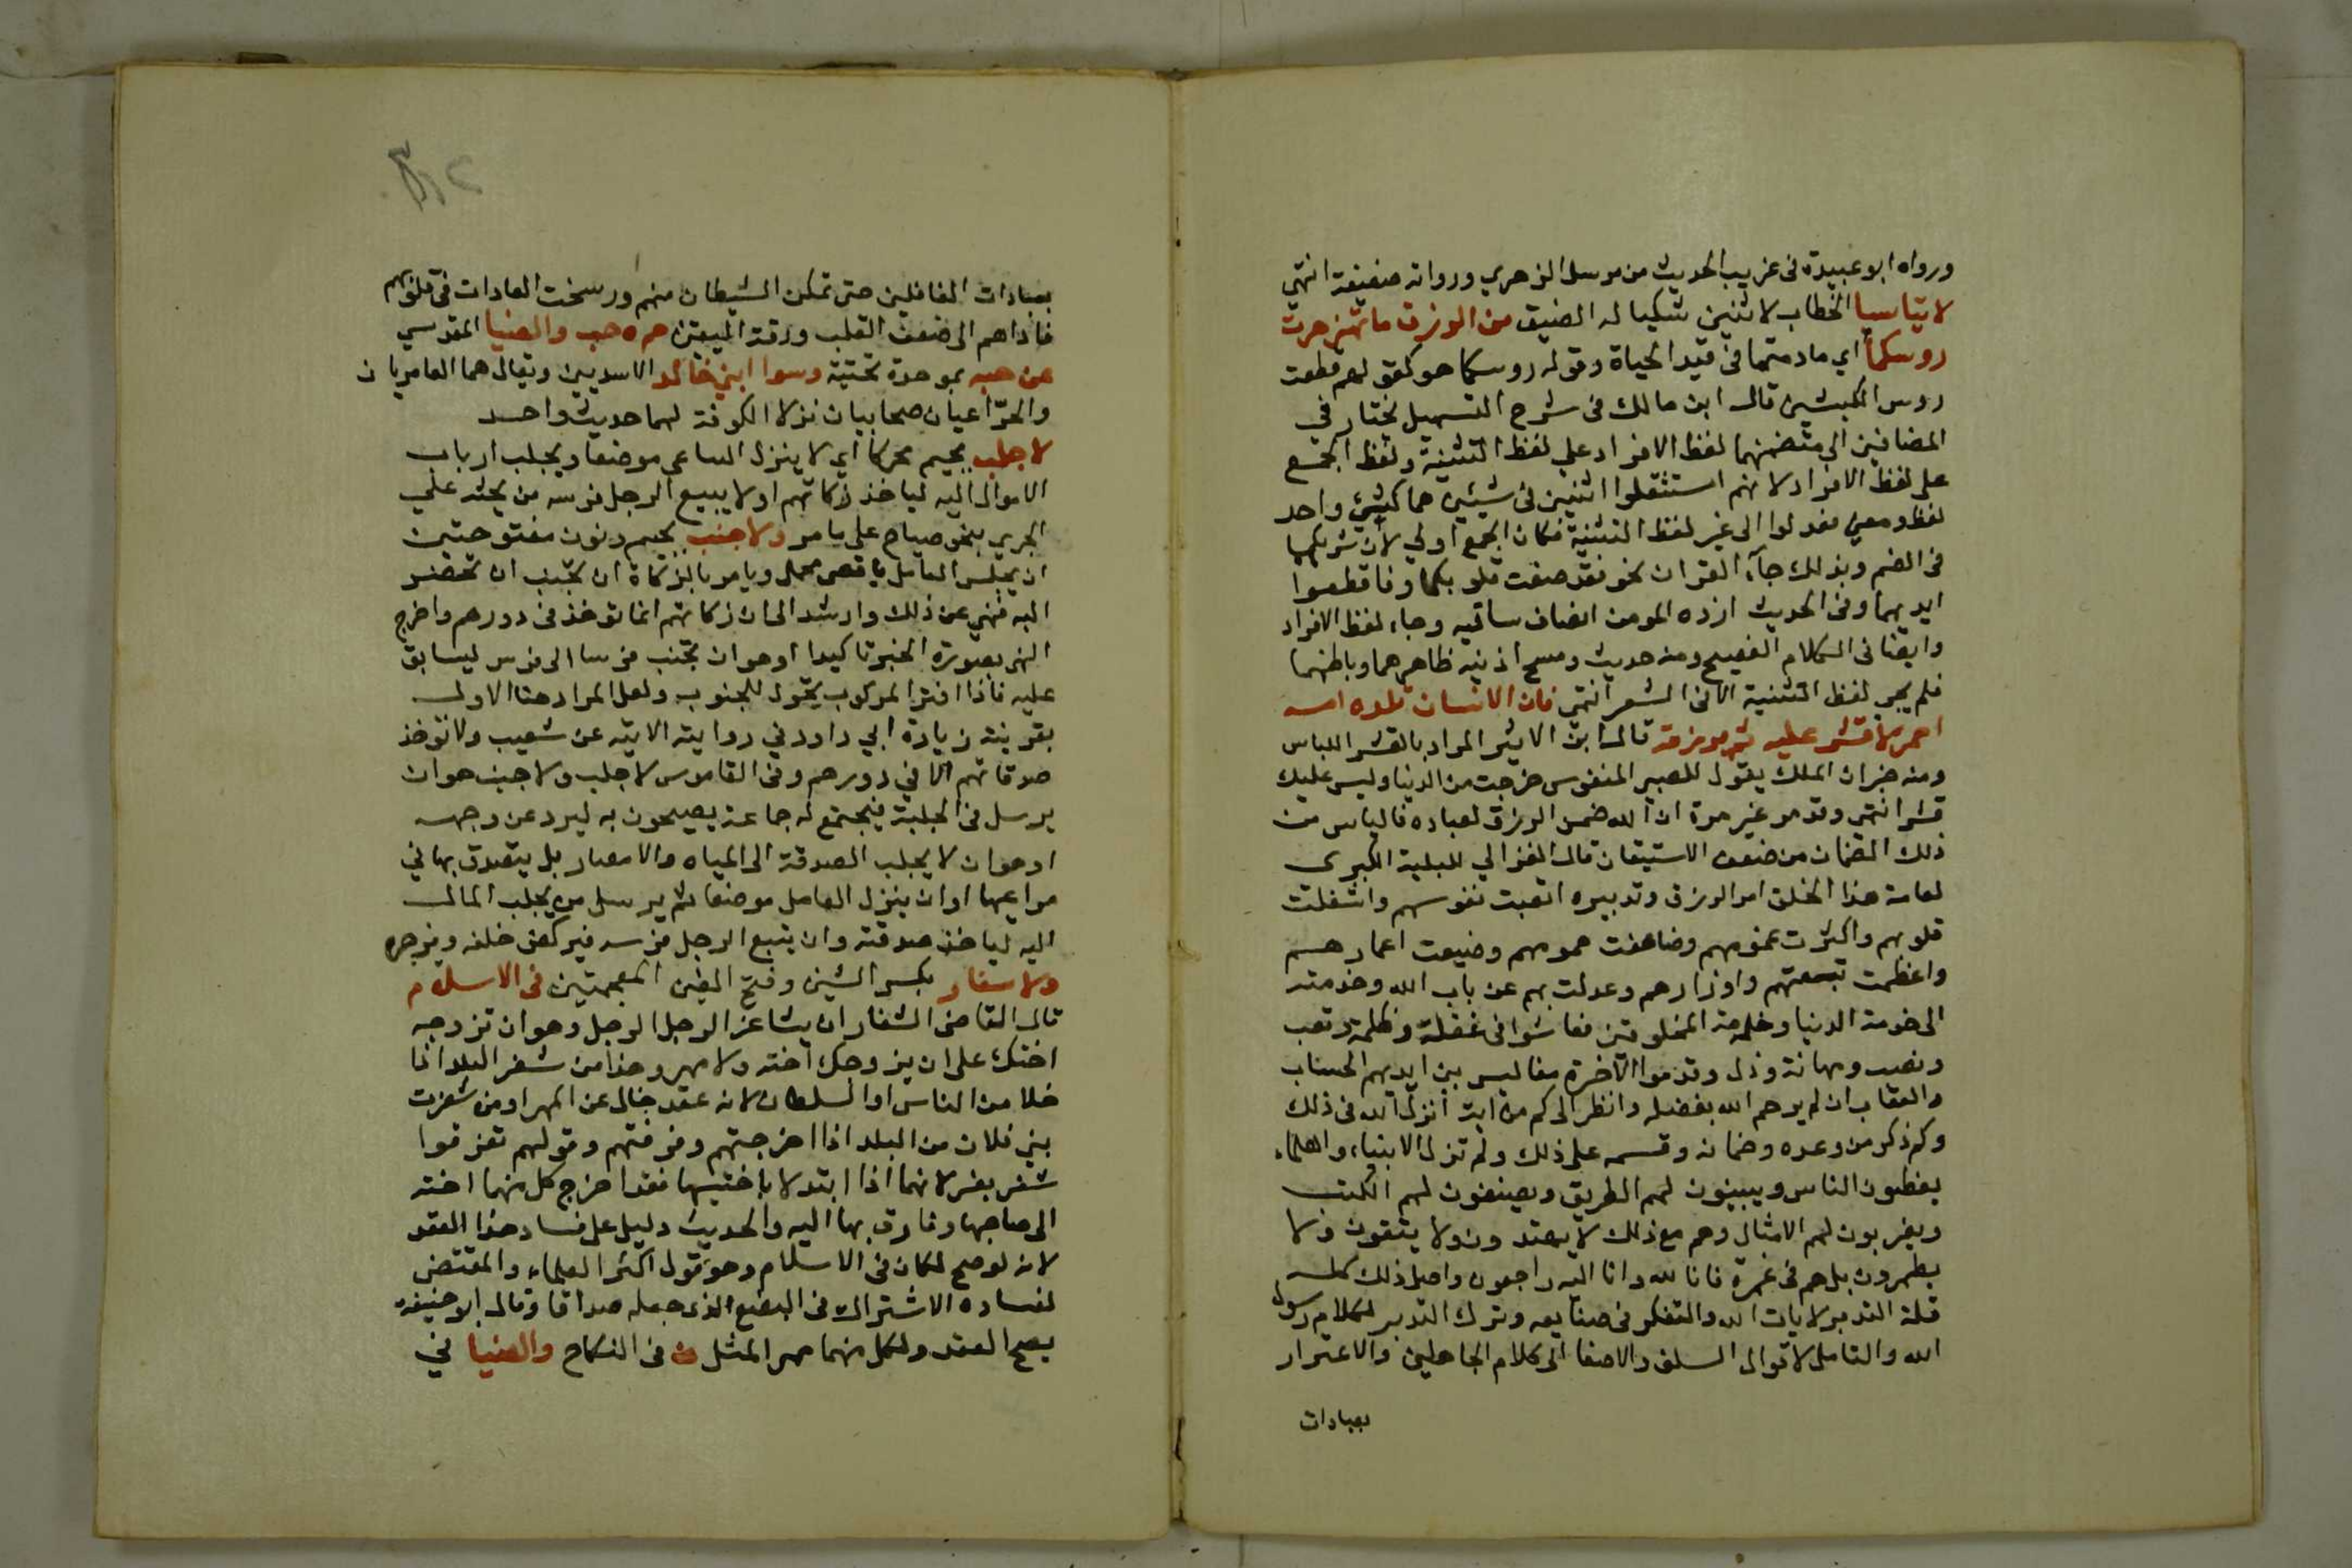 ورواه ابو عبيدة فى غريب الحديث من مرسل الزهري ورواته ضعيفة انتهى
لا تياسا الخطاب لاثنين شكيا له الضيق من الرزق ما تهزهزت
روسكما اي ما دمتما فى قيد الحياة وقوله روسكما هو كقولهم قطعت
روس الكبشين قال ابن مالك فى شرح التسهيل نختار في
المضافين الى متضمنهما لفظ الافراد على لفظ التثنية ولفظ الجمع
على لفظ الافراد لانهم استثقلوا اثنين فى شيئين هما كشيئ واحد
لفظا ومعنى فعدلوا الى غير لفظ التثنية فكان الجمع اولي لانه شريكها
فى الضم وبذلك جاء القران نحو فقد صغت قلوبكما وفاقطعوا
ايديهما وفى الحديث ازرة المومن انصاف ساقيه وجاء لفظ الافراد
وايضا فى الكلام الفصيح ومنه حديث ومسح اذنيه ظاهرهما وباطنهما
فلم يجي لفظ التثنية الا فى الشعر انتهى فان الانسان تلده امه
احمر لا قشر عليه ثم يرزقه قال ابن الاثير المراد بالقشر اللباس
ومنه خبر ان الملك يقول للصبي المنفوس خرجت من الدنيا وليس عليك
قشر انتهى وقد مر غير مرة ان الله ضمن الرزق لعباده فالياس من
ذلك الضمان من ضعف الاستيقان قال الغزالي البلية الكبرى
لعامة هذا الخلق امر الرزق وتدبيره اتعبت نفوسهم واشغلت
قلوبهم واكثرت غمومهم وضاعفت همومهم وضيعت اعمارهم
واعظمت تبعتهم واوزارهم وعدلت بهم عن باب الله وخدمته
الى خدمة الدنيا وخدمة المخلوقين فعاشوا فى غفلة وظلمة وتعب
ونصب ومهانة وذل وقدموا الاخرة مفاليس بين ايديهم الحساب
والعقاب ان لم يرحم الله بفضله وانظر الى كم من اية انزل الله فى ذلك
وكم ذكر من وعده وضمانه وقسمه على ذلك ولم تزل الانبياء والعلماء
يعظون الناس ويبينون لهم الطريق ويصنفون لهم الكتب
ويضربون لهم الامثال وهم مع ذلك لا يهتدون ولا يتقون ولا
يطمئنون بل هم فى غمرة فانا لله وانا اليه راجعون واصل ذلك كله
قلة التدبر لايات الله والتفكر فى صنايعه وترك التدبر لكلام رسول
الله والتامل لاقوال السلف والاصغا الى كلام الجاهلين والاغترار
بعبادات
بعبادات الغافلين حتى تمكن الشيطان منهم ورسخت العادات فى قلوبهم
فاداهم الى ضعف القلب ورقة اليقين حم ه حب والضيا المقدسي
عن حبه بموحدة تحتية وسوا ابني خالد الاسديين ويقال هما العامريان
والخزاعيان صحابيان نزلا الكوفة لهما حديث واحد
لا جلب بجيم محركا اي لا ينزل الساعى موضعا ويجلب ارباب
الاموال اليه لياخذ زكاتهم اولا يتبع الرجل فرسه من يحثه علي
الجري بنحو صياح على ما مر ولا جنب بجيم ونون مفتوحتين
ان يجلس العامل باقصى محل ويامر بالزكاة ان تجنب ان تحضر
اليه فنهي عن ذلك وارشد الى ان زكاتهم انما توخذ فى دورهم واخرج
النهى بصورة الخبر تاكيدا او هو ان يجنب فرسا الى فرس ليسابق
عليه فاذا افتر المركوب يتحول للمجنوب ولعل المراد هنا الاول
بقرينة زيادة ابي داود في روايته الاتية عن شعيب ولا توخذ
صدقاتهم الا في دورهم وفى القاموس لا جلب ولا جنب هو ان
يرسل فى الحلبة فيجتمع له جماعة يصيحون به ليرد عن وجهه
او هو ان لا يجلب الصدقة الى المياه والامصار بل يتصدق بها في
مراعيها او ان ينزل العامل موضعا ثم يرسل من يجلب المال
اليه لياخذ صدقته وان يتبع الرجل فرسه فيركض خلفه ويزجره
ولا شغار بكسر الشين وفتح الغين المعجمتين فى الاسلام
قال القاضى الشغار ان يشاغر الرجل الرجل وهو ان تزوجه
اختك على ان يزوجك اخته ولا مهر وهذا من شغر البلد اذا
خلا من الناس او السلطان لانه عقد خال عن المهر او من شغرت
بني فلان من البلد اذا اخرجتهم وفرقتهم وقولهم تفرقوا
شغر بغر لانهما اذا ابتدلا باختيهما فقد اخرج كل منهما اخته
الى صاحبها وفارق بها اليه والحديث دليل على فساد هذا العقد
لانه لو صح لكان فى الاسلام وهو قول اكثر العلماء والمقتضى
لفساده الاشتراك فى البضع الذى جعله صداقا وقال ابو حنيفة
يصح العقد ولكل منهما مهر المثل ن فى النكاح والضيا في